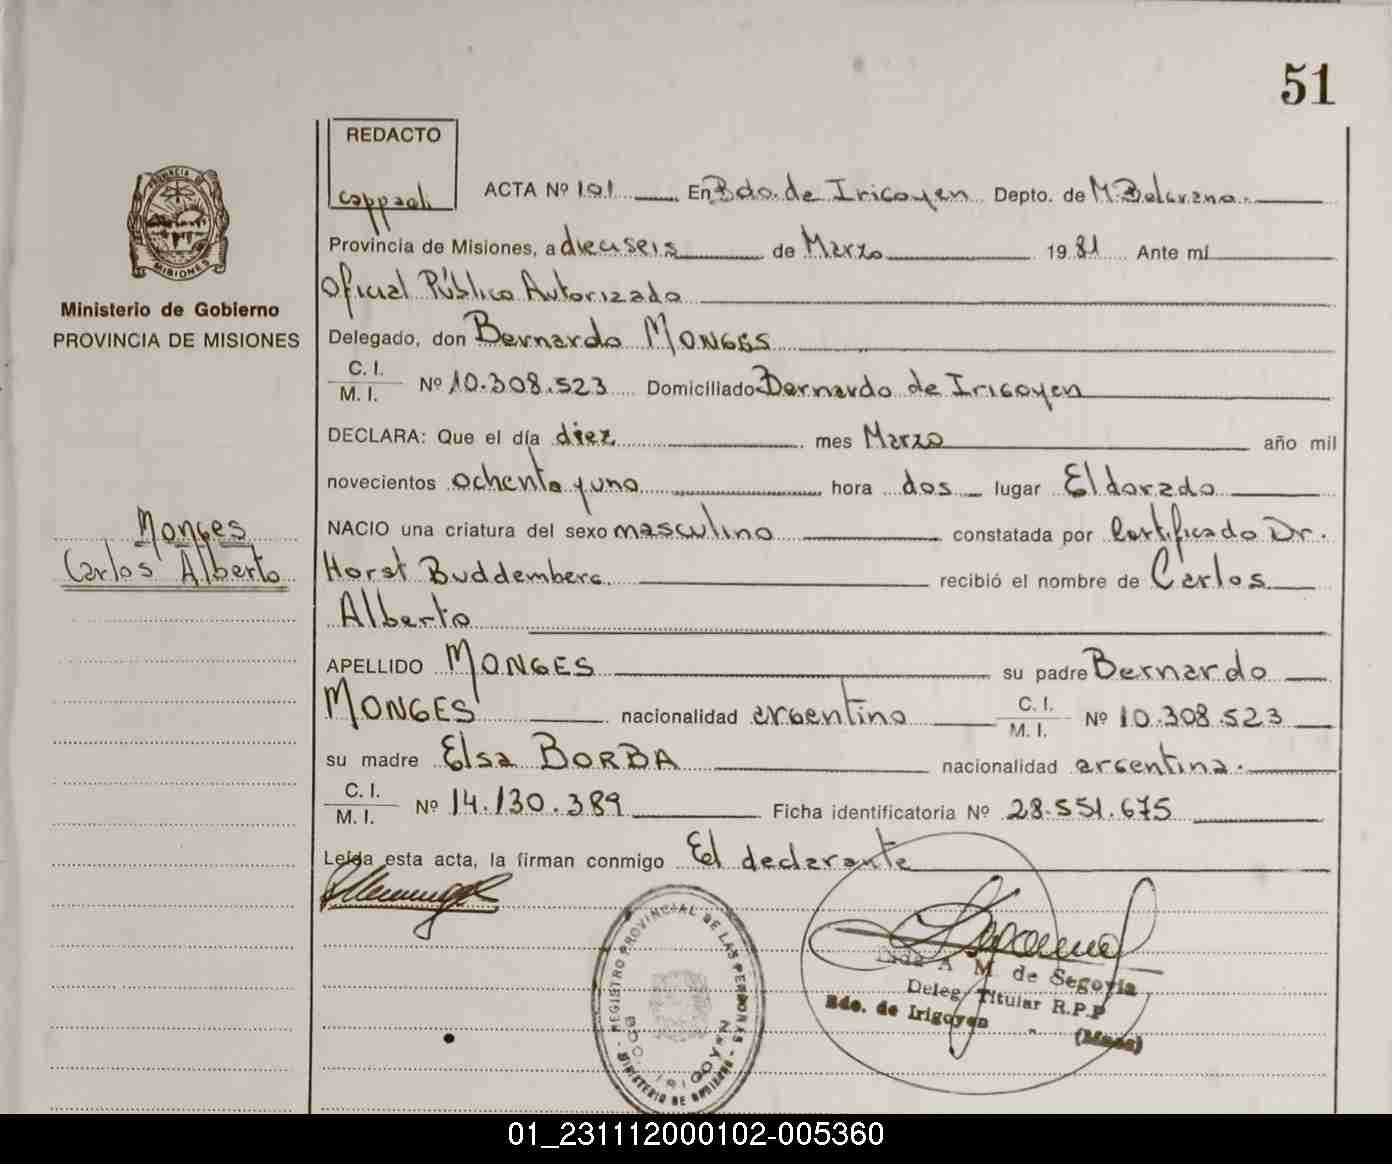 51
REDACTO
cappaoli
ACTA Nº 101 En Bdo. de Irigoyen Depto. de M. Belgrano.
PROVINCIA DE
MISIONES
Provincia de Misiones, a dieciseis de Marzo 1981 Ante mí
Oficial Público Autorizado
Ministerio de Gobierno
PROVINCIA DE MISIONES
Delegado, don Bernardo MONGES
C. I.
M. I. Nº 10.308.523 Domiciliado Bernardo de Irigoyen
DECLARA: Que el día diez mes Marzo año mil
novecientos ochenta y uno hora dos lugar Eldorado
Monges
Carlos Alberto
NACIO una criatura del sexo masculino constatada por Certificado Dr.
Horst Buddemberg. recibió el nombre de Carlos
Alberto
APELLIDO MONGES su padre Bernardo
MONGES nacionalidad argentino C. I.
M. I. Nº 10.308.523
su madre Elsa BORBA nacionalidad argentina.
C. I.
M. I. Nº 14.130.389 Ficha identificatoria Nº 28.551.675
Leída esta acta, la firman conmigo El declarante
REGISTRO PROVINCIAL DE LAS PERSONAS
MINISTERIO DE GOBIERNO
IRIGOYEN
A. M. de Segovia
Deleg Titular R.P.P
Bdo. de Irigoyen " (Mnes)
01_231112000102-005360